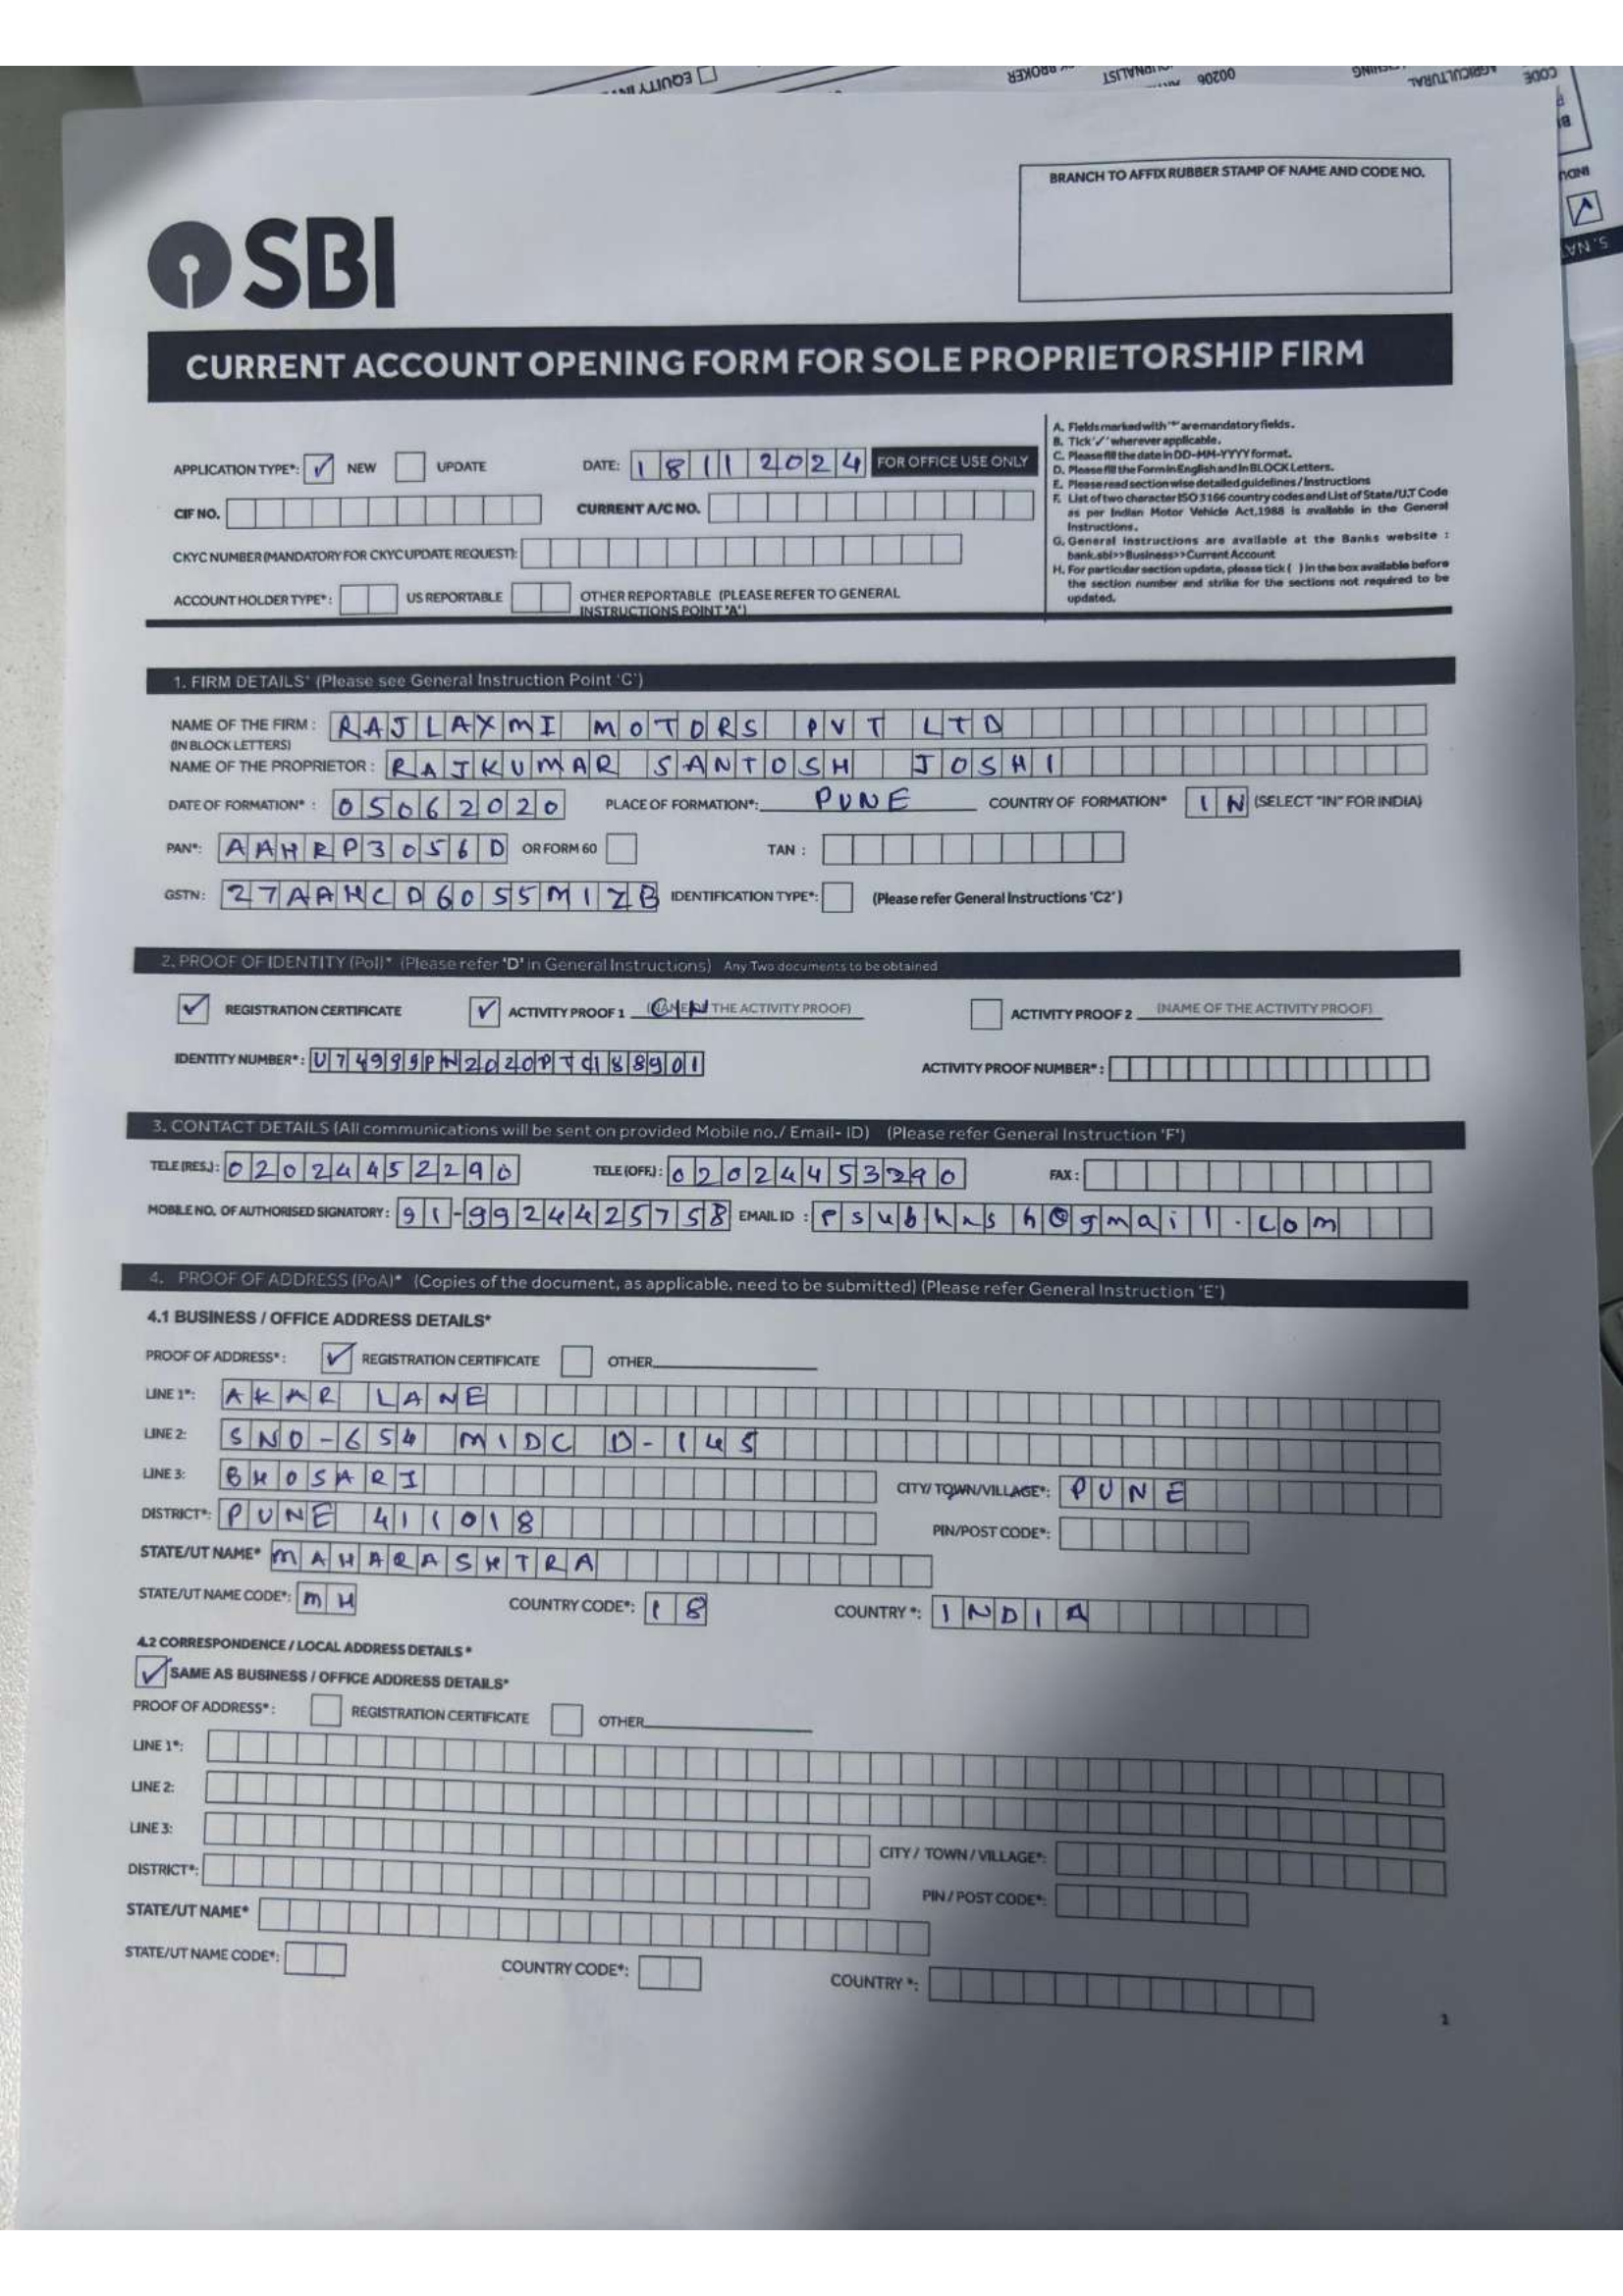 EQUITY
BROKER
00206
AGRICULTURAL
CODE
BRANCH TO AFFIX RUBBER STAMP OF NAME AND CODE NO.
SBI
CURRENT ACCOUNT OPENING FORM FOR SOLE PROPRIETORSHIP FIRM
APPLICATION TYPE*: ✓ NEW UPDATE DATE: 18112024 FOR OFFICE USE ONLY
CIF NO. CURRENT A/C NO.
CKYC NUMBER (MANDATORY FOR CKYC UPDATE REQUEST):
ACCOUNT HOLDER TYPE*: US REPORTABLE OTHER REPORTABLE (PLEASE REFER TO GENERAL
INSTRUCTIONS POINT 'A')
A. Fields marked with '*' are mandatory fields.
B. Tick '✓' wherever applicable.
C. Please fill the date in DD-MM-YYYY format.
D. Please fill the Form in English and in BLOCK Letters.
E. Please read section wise detailed guidelines / Instructions
F. List of two character ISO 3166 country codes and List of State/U.T Code
as per Indian Motor Vehicle Act,1988 is available in the General
Instructions.
G. General Instructions are available at the Banks website :
bank.sbi>>Business>>Current Account
H. For particular section update, please tick ( ) in the box available before
the section number and strike for the sections not required to be
updated.
1. FIRM DETAILS* (Please see General Instruction Point 'C')
NAME OF THE FIRM : RAJLAXMI MOTORS PVT LTD
(IN BLOCK LETTERS)
NAME OF THE PROPRIETOR : RAJKUMAR SANTOSH JOSHI
DATE OF FORMATION* : 05062020 PLACE OF FORMATION*: PUNE COUNTRY OF FORMATION* IN (SELECT "IN" FOR INDIA)
PAN*: AAHRP3056D OR FORM 60 TAN :
GSTN: 27AAHCD6055M1ZB IDENTIFICATION TYPE*: (Please refer General Instructions 'C2')
2. PROOF OF IDENTITY (PoI)* (Please refer 'D' in General Instructions) Any Two documents to be obtained
✓ REGISTRATION CERTIFICATE ✓ ACTIVITY PROOF 1 (NAME OF THE ACTIVITY PROOF) CIN ACTIVITY PROOF 2 (NAME OF THE ACTIVITY PROOF)
IDENTITY NUMBER*: U74999PN2020PTC188901 ACTIVITY PROOF NUMBER* :
3. CONTACT DETAILS (All communications will be sent on provided Mobile no./ Email- ID) (Please refer General Instruction 'F')
TELE (RES.): 02024452290 TELE (OFF.): 02024453290 FAX :
MOBILE NO. OF AUTHORISED SIGNATORY: 91-9924425758 EMAIL ID : psubhnsh@gmail.com
4. PROOF OF ADDRESS (PoA)* (Copies of the document, as applicable, need to be submitted) (Please refer General Instruction 'E')
4.1 BUSINESS / OFFICE ADDRESS DETAILS*
PROOF OF ADDRESS* : ✓ REGISTRATION CERTIFICATE OTHER
LINE 1*: AKAR LANE
LINE 2: SNO-654 MIDC D-145
LINE 3: BHOSARI CITY/ TOWN/VILLAGE*: PUNE
DISTRICT*: PUNE 411018 PIN/POST CODE*:
STATE/UT NAME* MAHARASHTRA
STATE/UT NAME CODE*: MH COUNTRY CODE*: 18 COUNTRY *: INDIA
4.2 CORRESPONDENCE / LOCAL ADDRESS DETAILS *
✓ SAME AS BUSINESS / OFFICE ADDRESS DETAILS*
PROOF OF ADDRESS* : REGISTRATION CERTIFICATE OTHER
LINE 1*:
LINE 2:
LINE 3: CITY / TOWN / VILLAGE*:
DISTRICT*: PIN / POST CODE*:
STATE/UT NAME*
STATE/UT NAME CODE*: COUNTRY CODE*: COUNTRY *:
1